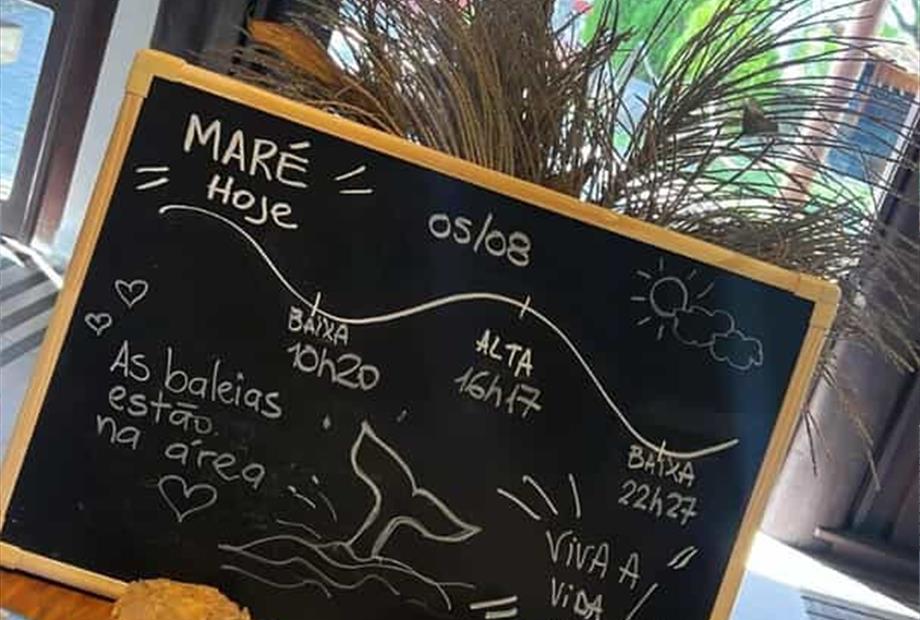 MARÉ
Hoje
05/08
BAIXA
10h20
ALTA
16h17
BAIXA
22h27
As baleias
estão
na área
VIVA A
VIDA